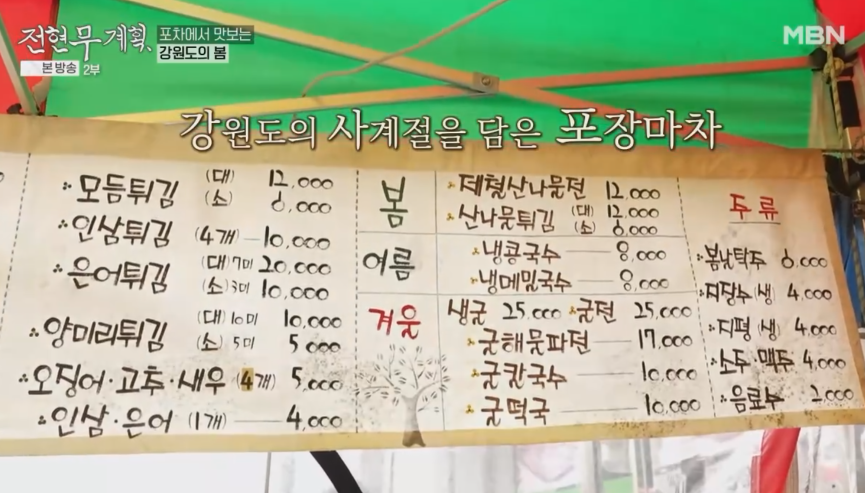 전현무계획
포차에서 맛보는
강원도의 봄
본 방송 2부
MBN
강원도의 사계절을 담은 포장마차
모듬튀김 (대) 12,000
(소) 6,000
인삼튀김 (4개) 10,000
은어튀김 (대) 7미 20,000
(소) 3미 10,000
양미리튀김 (대) 10미 10,000
(소) 5미 5,000
오징어·고추·새우 (4개) 5,000
인삼·은어 (1개) 4,000
봄
제철산나물전 12,000
산나물튀김 (대) 12,000
(소) 6,000
여름
냉콩국수 8,000
냉메밀국수 8,000
겨울
생굴 25,000 굴전 25,000
굴해물파전 17,000
굴칼국수 10,000
굴떡국 10,000
주류
봄난탁주 6,000
지장수(생) 4,000
지평(생) 4,000
소주·맥주 4,000
음료수 2,000